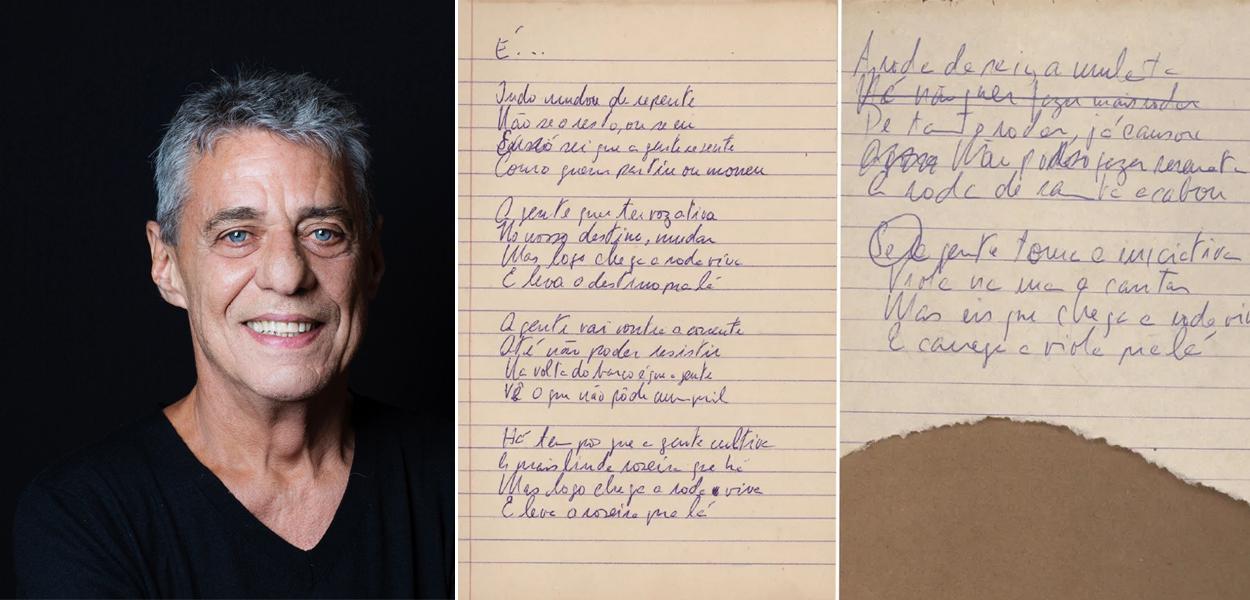 É...
Tudo mudou de repente
Não se o resto, ou se eu
Só sei que a gente se sente
Como quem partiu ou morreu
A gente quer ter voz ativa
No nosso destino, mudar
Mas logo chega a roda viva
E leva o destino pra lá
A gente vai contra a corrente
Até não poder resistir
Na volta do barco é que a gente
Vê o que não pôde cumprir
Há tempo que a gente cultiva
A mais linda roseira que há
Mas logo chega a roda viva
E leva a roseira pra lá
A roda de saia, a mulata
não quer fazer mais rodar
De tanto rodar, já cansou
Não posso fazer serenata
A roda de samba acabou
A gente toma a iniciativa
Viola na rua a cantar
Mas eis que chega a roda viv
E carrega a viola pra lá